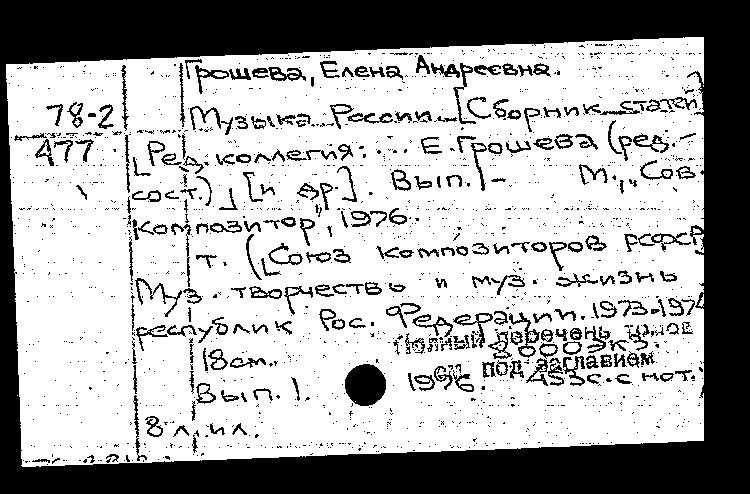 Грошева, Елена Андреевна.
78-2 Музыка России. [Сборник статей]
477 [Ред. коллегия: ... Е. Грошева (ред.-
сост.)] [и др.]. Вып. 1- М., „Сов.
композитор", 1976.
т. ([Союз композиторов РСФСР]
Муз. творчество и муз. жизнь
республик Рос. Федерации. 1973-1974
Полный перечень томов
18 см. 8000 экз.
см. под заглавием
Вып. 1. 1976. 453 с. с нот.;
8 л. ил.